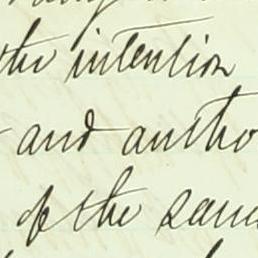 the intention
and autho
of the same